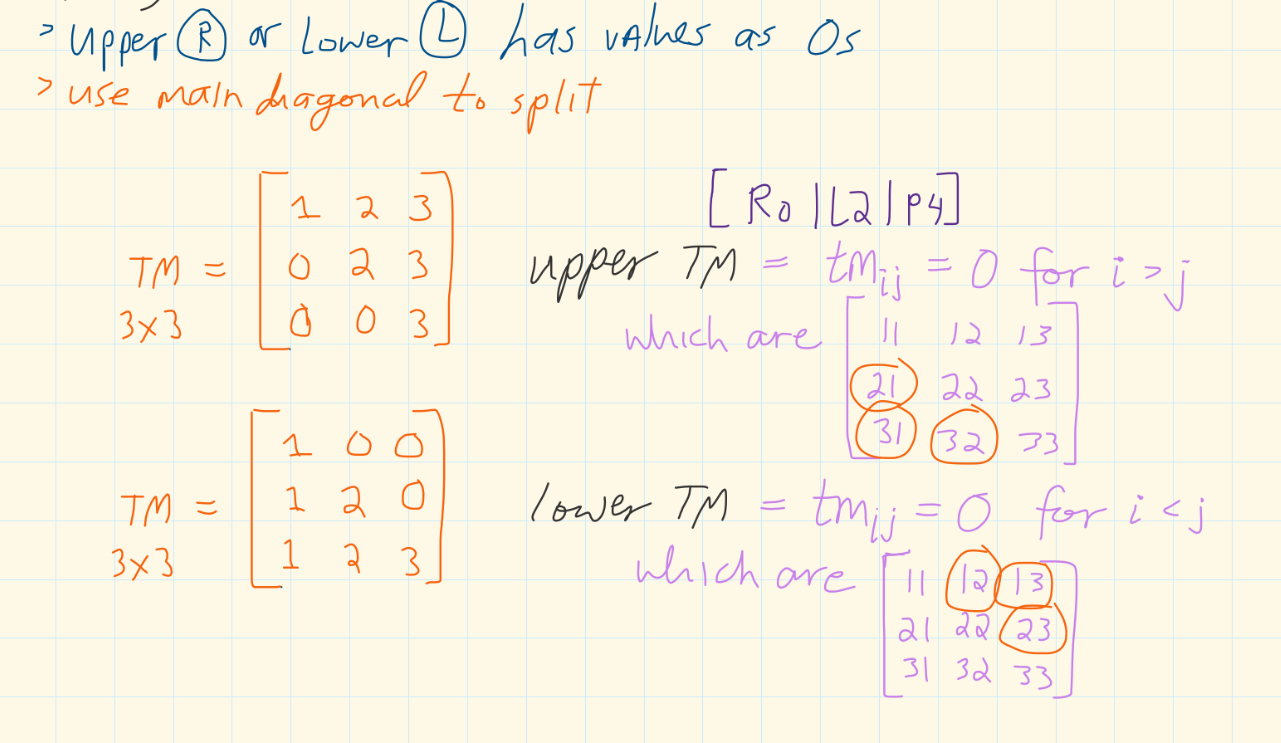 > upper (R) or Lower (L) has values as 0s
> use main diagonal to split
[R0|L2|P4]
1 2 3
TM = 0 2 3
3x3 0 0 3
upper TM = tm_ij = 0 for i > j
which are 11 12 13
21 22 23
31 32 33
1 0 0
TM = 1 2 0
3x3 1 2 3
lower TM = tm_ij = 0 for i < j
which are 11 12 13
21 22 23
31 32 33